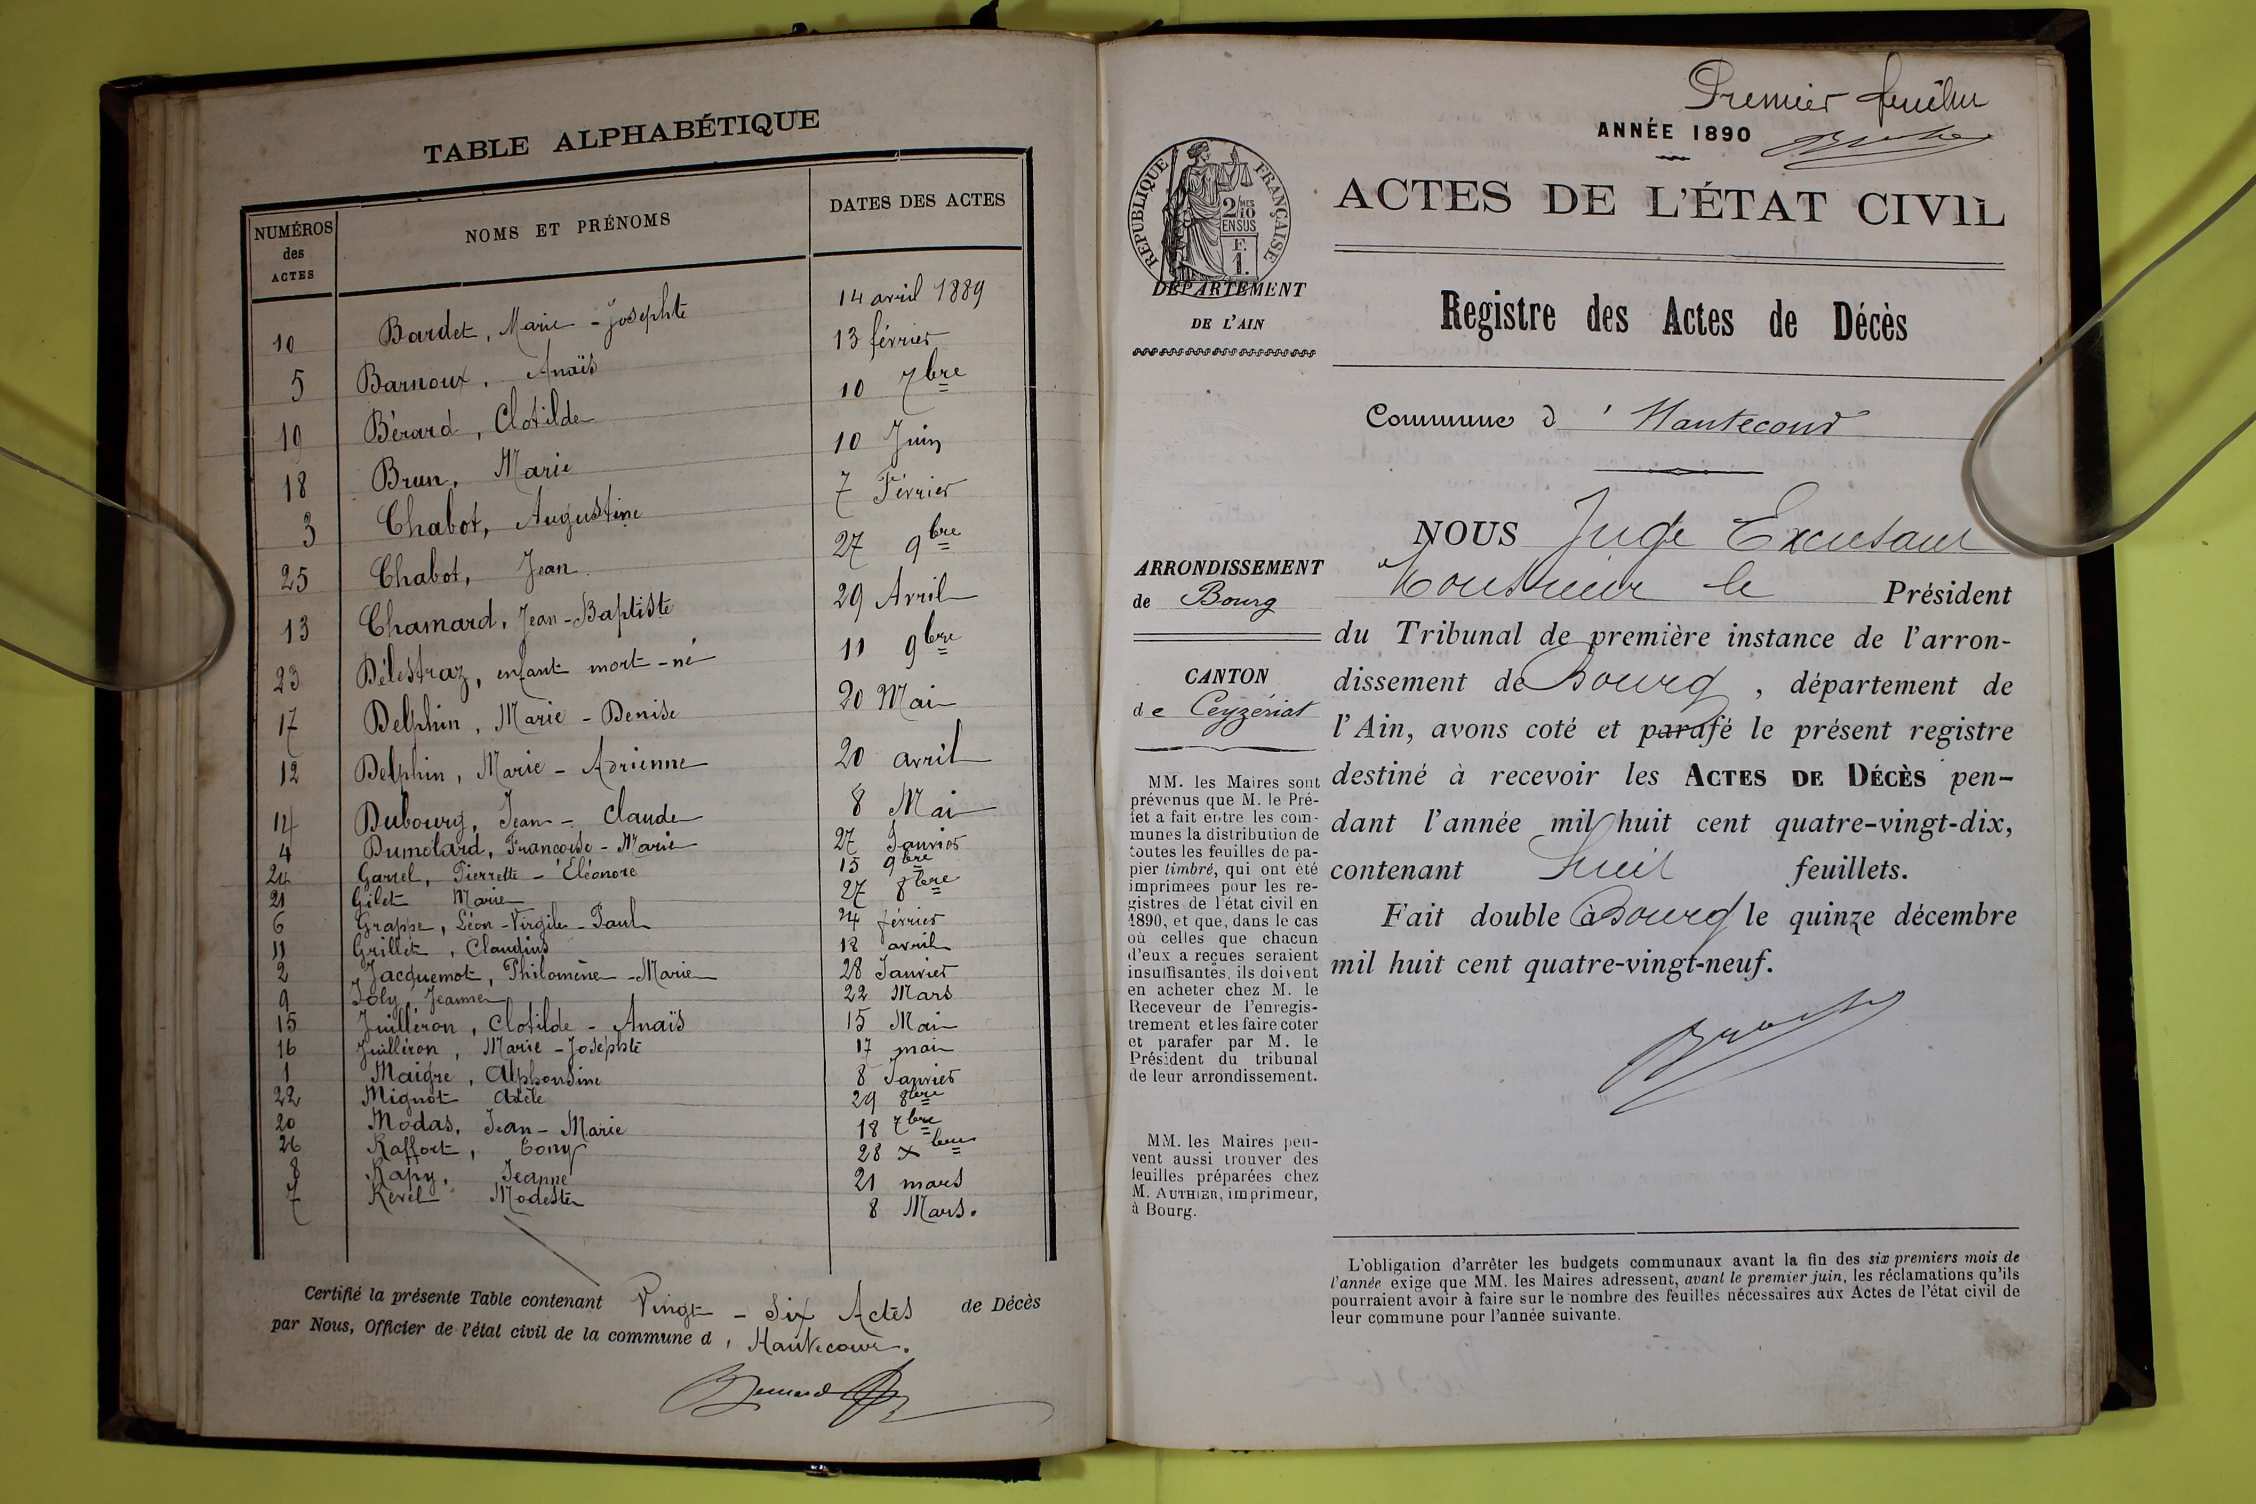 TABLE ALPHABÉTIQUE
NUMÉROS des ACTES NOMS ET PRÉNOMS DATES DES ACTES
10 Bardet, Marie - Josephte 14 avril 1889
5 Barnoux, Anaïs 13 février
19 Bérard, Clotilde 10 7bre
18 Brun, Marie 10 Juin
3 Chabot, Augustine 7 Février
25 Chabot, Jean 27 9bre
13 Chamard, Jean-Baptiste 29 Avril
23 Délestraz, enfant mort-né 11 9bre
17 Delphin, Marie - Denise 20 Mai
12 Delphin, Marie - Adrienne 20 avril
14 Dubourg, Jean - Claude 8 Mai
4 Dumolard, Francoise - Marie 27 Janvier
24 Garrel, Pierrette - Éléonore 15 9bre
21 Gilet Marie 27 8bre
6 Grappe, Léon - Virgile - Paul 24 février
11 Grillet, Claudius 18 avril
2 Jacquemot, Philomène - Marie 28 Janvier
9 Joly, Jeanne 22 Mars
15 Juilléron, Clotilde - Anaïs 15 Mai
16 Juilléron, Marie - Josephte 17 mai
1 Maigre, Alphonsine 8 Janvier
22 Mignot Adèle 29 8bre
20 Modas, Jean - Marie 18 7bre
26 Raffort, Tony 28 Xbre
8 Rapy, Jeanne 21 mars
7 Revel Modeste 8 Mars.
Certifié la présente Table contenant Vingt - Six Actes de Décès
par Nous, Officier de l'état civil de la commune d' Hautecour.
Bernard
Premier feuillet
ANNÉE 1890
RÉPUBLIQUE FRANÇAISE
2/10 MES
EN SUS
F.
1.
ACTES DE L'ÉTAT CIVIL
DÉPARTEMENT
DE L'AIN
Registre des Actes de Décès
Commune d' Hautecour
ARRONDISSEMENT
de Bourg
CANTON
de Ceyzériat
MM. les Maires sont
prévenus que M. le Pré-
fet a fait entre les com-
munes la distribution de
toutes les feuilles de pa-
pier timbré, qui ont été
imprimées pour les re-
gistres de l'état civil en
1890, et que, dans le cas
où celles que chacun
d'eux a reçues seraient
insuffisantes, ils doivent
en acheter chez M. le
Receveur de l'enregis-
trement et les faire coter
et parafer par M. le
Président du tribunal
de leur arrondissement.
MM. les Maires peu-
vent aussi trouver des
feuilles préparées chez
M. AUTHIER, imprimeur,
à Bourg.
NOUS Juge Excusant
Monsieur le Président
du Tribunal de première instance de l'arron-
dissement de Bourg, département de
l'Ain, avons coté et parafé le présent registre
destiné à recevoir les ACTES DE DÉCÈS pen-
dant l'année mil huit cent quatre-vingt-dix,
contenant huit feuillets.
Fait double à Bourg le quinze décembre
mil huit cent quatre-vingt-neuf.
L'obligation d'arrêter les budgets communaux avant la fin des six premiers mois de
l'année exige que MM. les Maires adressent, avant le premier juin, les réclamations qu'ils
pourraient avoir à faire sur le nombre des feuilles nécessaires aux Actes de l'état civil de
leur commune pour l'année suivante.